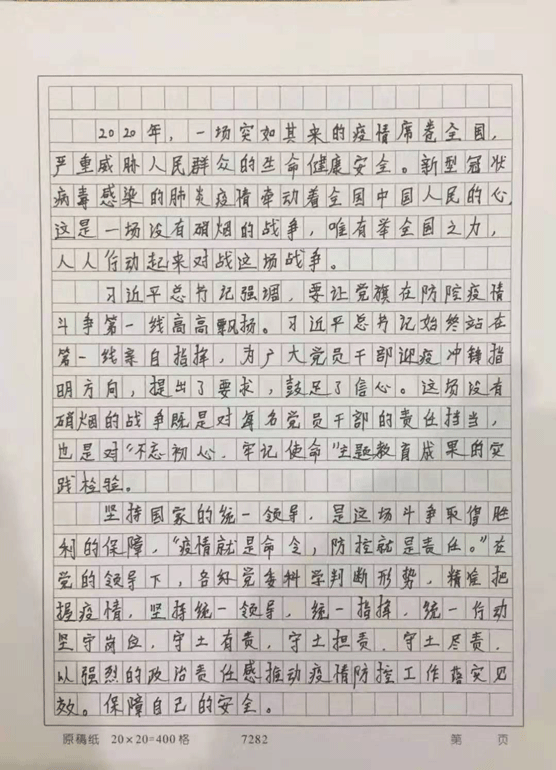 2020年，一场突如其来的疫情席卷全国，
严重威胁人民群众的生命健康安全。新型冠状
病毒感染的肺炎疫情牵动着全国中国人民的心，
这是一场没有硝烟的战争，唯有举全国之力，
人人行动起来对战这场战争。
习近平总书记强调，要让党旗在防控疫情
斗争第一线高高飘扬。习近平总书记始终站在
第一线亲自指挥，为广大党员干部迎疫冲锋指
明方向，提出了要求，鼓足了信心。这场没有
硝烟的战争既是对每名党员干部的责任担当，
也是对“不忘初心、牢记使命”主题教育成果的实
践检验。
坚持国家的统一领导，是这场斗争取得胜
利的保障，“疫情就是命令，防控就是责任。”在
党的领导下，各级党委科学判断形势，精准把
握疫情，坚持统一领导，统一指挥，统一行动
坚守岗位，守土有责，守土担责，守土尽责，
以强烈的政治责任感推动疫情防控工作落实见
效。保障自己的安全。
原稿纸 20×20=400格 7282 第 页